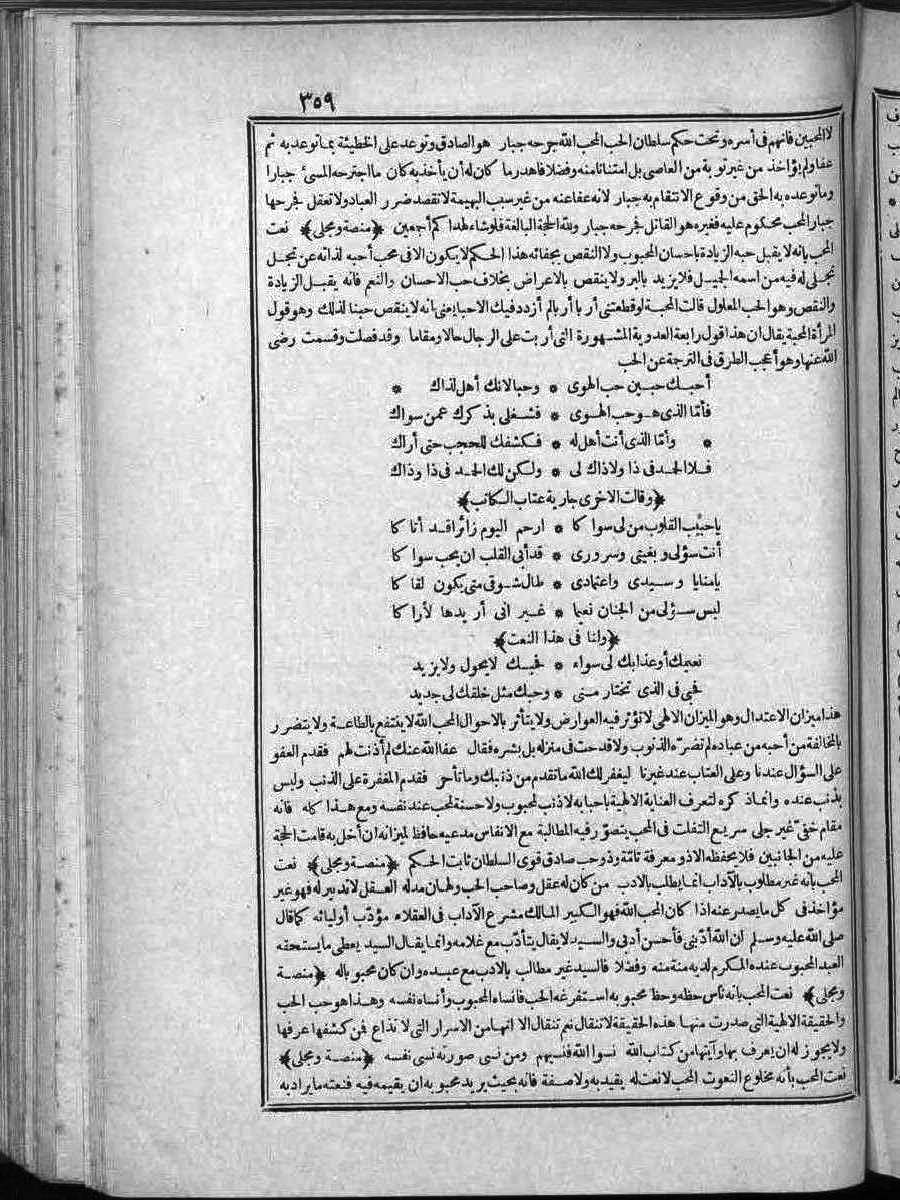 ٣٥٩
لا المحبين فانهم في أسره وتحت حكم سلطان الحب المحب الله جرحه جبار هو الصادق وتوعد على الخطيئة بما توعد به ثم
عفا ولم يؤاخذ من غير توبة من العاصى بل امتنانا منه وفضلا فاهدر ما كان له أن يأخذ به كان ما اجترحه المسئ جبارا
وما توعده به الحق من وقوع الانتقام به جبار لانه عفا عنه من غير سبب البهيمة لا تقصد ضرر العباد ولا تعقل فجرحها
جبار المحب محكوم عليه فغيره هو القاتل فجرحه جبار ولله الحجة البالغة فلو شاء لهداكم أجمعين ﴿منصة ومجلى﴾ نعت
المحب بانه لا يقبل حبه الزيادة باحسان المحبوب ولا النقص بجفائه هذا الحكم لا يكون الا في محب أحبه لذاته عن تجل
تجلى له فيه من اسمه الجميل فلا يزيد بالبر ولا ينقص بالاعراض بخلاف حب الاحسان والنعم فانه يقبل الزيادة
والنقص وهو الحب المعلول قالت المحبة لو قطعتنى أربا أربا لم أزدد فيك الاحبا يعنى انه لا ينقص حبنا لذلك وهو قول
المرأة المحبة يقال ان هذا قول رابعة العدوية المشهورة التى أربت على الرجال حالا ومقاما وقد فصلت وقسمت رضى
الله عنها وهو أعجب الطرق فى الترجمة عن الحب
أحبك حبين حب الهوى * وحبا لانك أهل لذاك *
فأما الذى هو حب الهوى * فشغلى بذكرك عمن سواك
* وأما الذى أنت أهل له * فكشفك للحجب حتى أراك
فلا الحمد فى ذا ولا ذاك لى * ولكن لك الحمد فى ذا وذاك
﴿وقالت الاخرى جارية عتاب الكاتب﴾
يا حبيب القلوب من لى سواكا * ارحم اليوم زائرا قد أتاكا
أنت سؤلى وبغيتى وسرورى * قد أبى القلب ان يحب سواكا
يا منايا وسيدى واعتمادى * طال شوقى متى يكون لقاكا
ليس سؤلى من الجنان نعيما * غير انى أريدها لأراكا
﴿ولنا فى هذا النعت﴾
نعيمك أو عذابك لى سواء * فحبك لا يحول ولا يزيد
فحبى فى الذى تختار منى * وحبك مثل خلقك لى جديد
هذا ميزان الاعتدال وهو الميزان الالهى لا تؤثر فيه العوارض ولا يتأثر بالاحوال المحب الله لا ينتفع بالطاعة ولا يتضرر
بالمخالفة من أحبه من عباده لم تضره الذنوب ولا قدحت فى منزله بل بشره فقال عفا الله عنك لم أذنت لهم فقدم العفو
على السؤال عندنا وعلى العتاب عند غيرنا ليغفر لك الله ما تقدم من ذنبك وما تأخر فقدم المغفرة على الذنب وليس
بذنب عنده وانما ذكره لتعرف العناية الالهية باحبابه لا ذنب لمحبوب ولا حسنة لمحب عند نفسه ومع هذا كله فانه
مقام خفى غير جلى سريع التفلت فى المحب يتصور فيه المطالبة مع الانفاس مدعيه حافظ لميزانه ان أخل به قامت الحجة
عليه من الجانبين فلا يحفظه الا ذو معرفة تامة وذو حب صادق قوى السلطان ثابت الحكم ﴿منصة ومجلى﴾ نعت
المحب بانه غير مطلوب بالآداب انما يطلب بالادب من كان له عقل وصاحب الحب ولهان مدله العقل لا تدبير له فهو غير
مؤاخذ فى كل ما يصدر عنه اذا كان المحب الله فهو الكبير المالك مشرع الآداب فى العقلاء مؤدب أوليائه كما قال
صلى الله عليه وسلم ان الله أدبنى فأحسن أدبى والسيد لا يقال يتأدب مع غلامه وانما يقال السيد يعطى ما يستحقه
العبد المحبوب عنده المكرم لديه منة منه وفضلا فالسيد غير مطالب بالادب مع عبده وان كان محبوبا له ﴿منصة
ومجلى﴾ نعت المحب بانه ناس حظه وحظ محبوبه استفرغه الحب فانساه المحبوب وأنساه نفسه وهذا هو حب الحب
والحقيقة الالهية التى صدرت منها هذه الحقيقة لا تنقال نعم تنقال الا انها من الاسرار التى لا تذاع فمن كشفها عرفها
ولا يجوز له ان يعرف بها وآيتها من كتاب الله نسوا الله فنسيهم ومن نسى صورته نسى نفسه ﴿منصة ومجلى﴾
نعت المحب بأنه مخلوع النعوت المحب لا نعت له يقيد به ولا صفة فانه بحيث يريد محبوبه ان يقيمه فيه فنعته ما يراد به